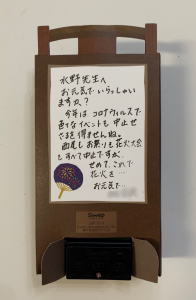 水野先生へ
お元気でいらっしゃい
ますか?
今年はコロナウィルスで
色々なイベントも中止せ
ざるを得ませんね。
西尾もお祭りも花火大会
もすべて中止ですが、
せめて、これで
花火を…
お元気で…